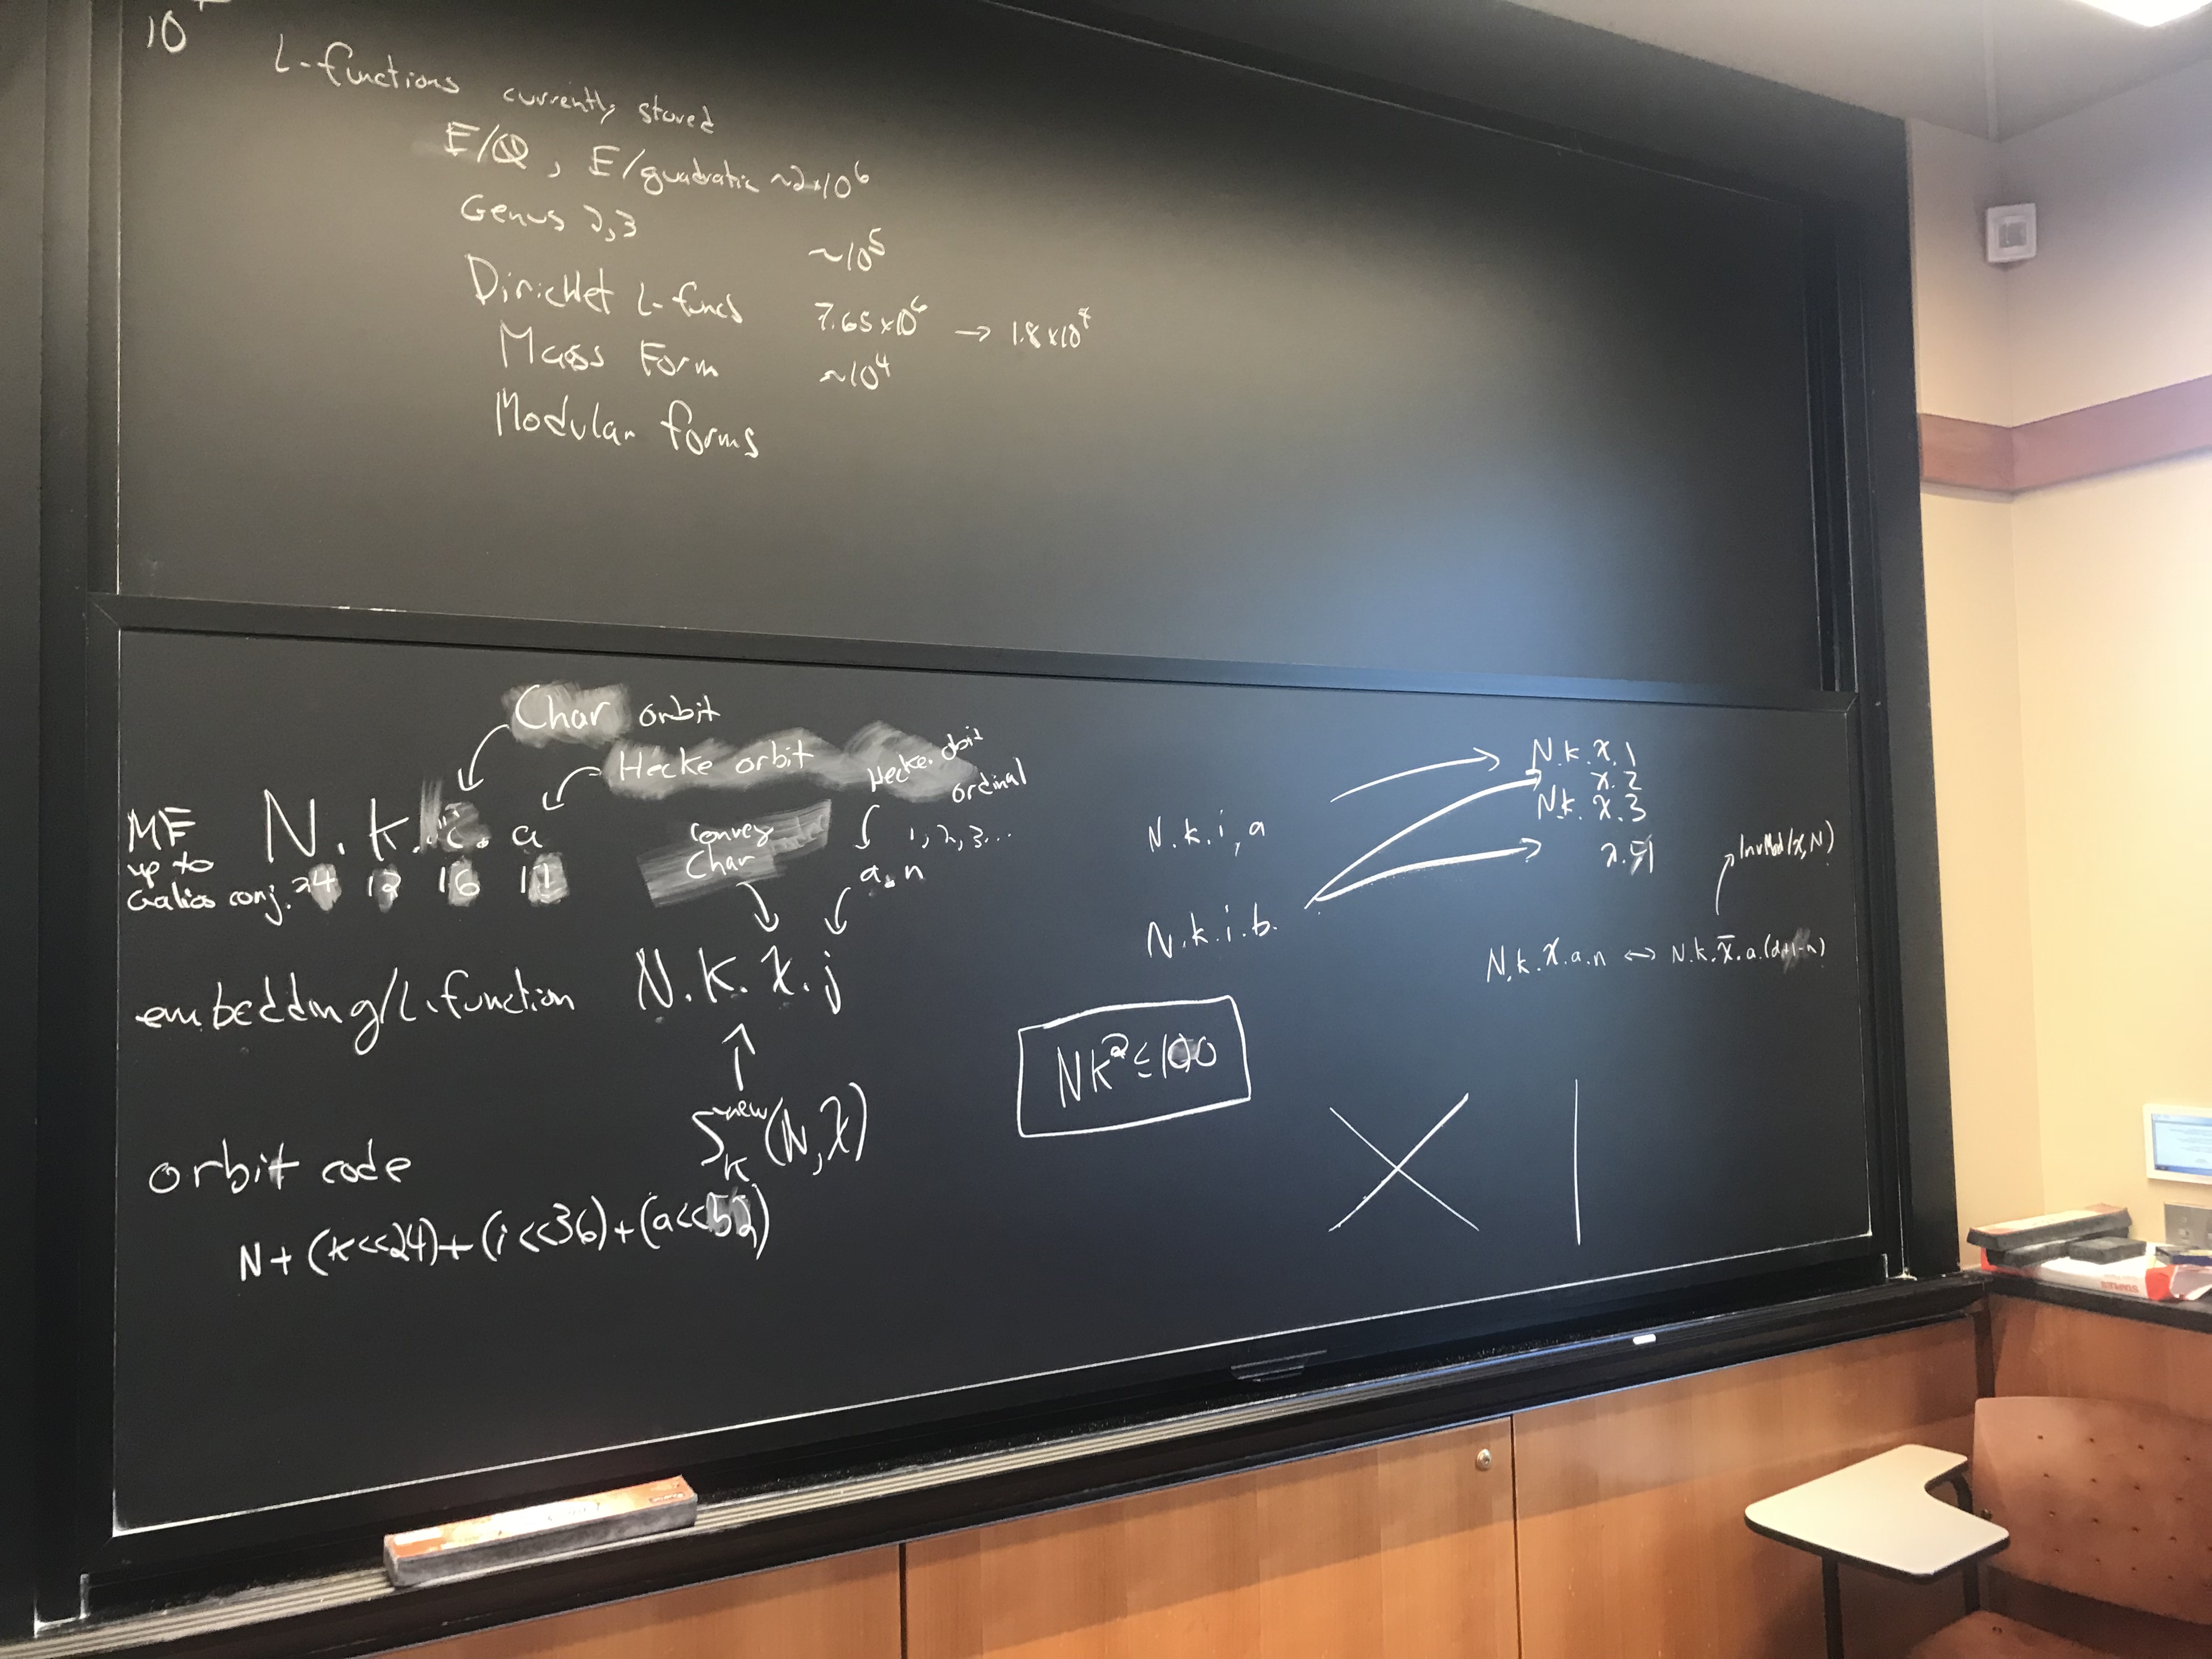 10
L-functions currently stored
E/ℚ, E/quadratic ~2×10⁶
Genus 2,3 ~10⁵
Dirichlet L-funcs 7.65×10⁶ → 1.8×10⁷
Maass Form ~10⁴
Modular forms
Char orbit
Hecke orbit
Hecke orbit ordinal
1, 2, 3...
MF N.k.i.a
up to
Galios conj. 24 12 16 11
Conrey
Char
a.n
embedding/L-function N.k.χ.j
S_k^new(N,χ)
orbit code
N+(k<<24)+(i<<36)+(a<<52)
N.k.i.a
N.k.i.b.
N.k.χ.1
χ.2
N.k.χ.3
InvMod(χ,N)
N.k.χ.a.n ↔ N.k.χ̄.a.(d+1-n)
Nk²≤100